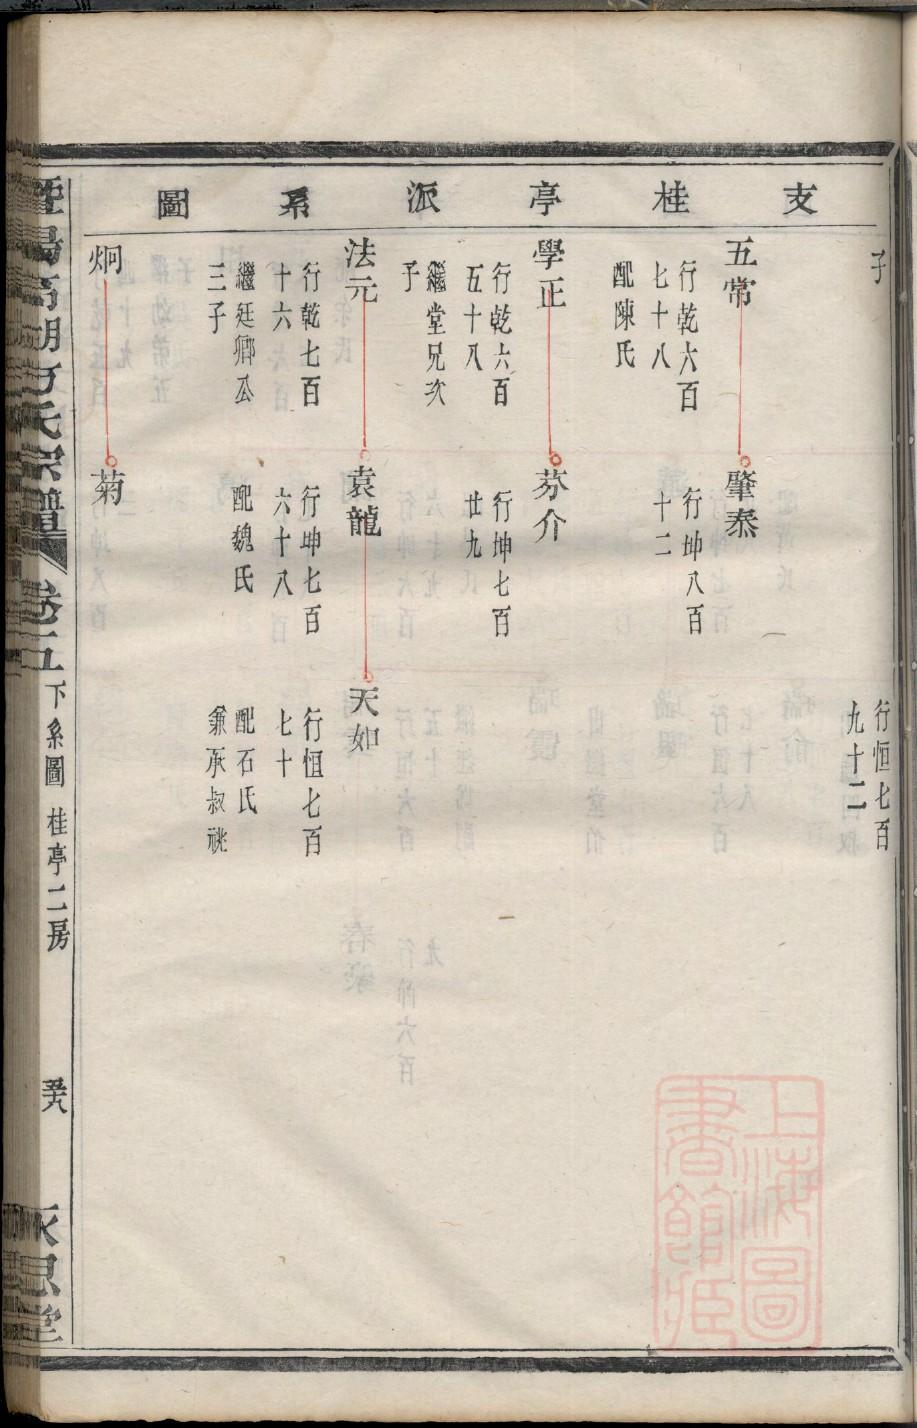 支桂亭派系圖
子
行恒七百
九十二
五常
行乾六百
七十八
配陳氏
肇泰
行坤八百
十二
學正
行乾六百
五十八
繼堂兄次
子
芬介
行坤七百
廿九
法元
行乾七百
十六
繼廷卿公
三子
袁龍
行坤七百
六十八
配魏氏
天如
行恒七百
七十
配石氏
兼承叔祧
炯
菊
宗譜
卷五
下系圖
桂亭二房
思堂
上海圖
書館藏